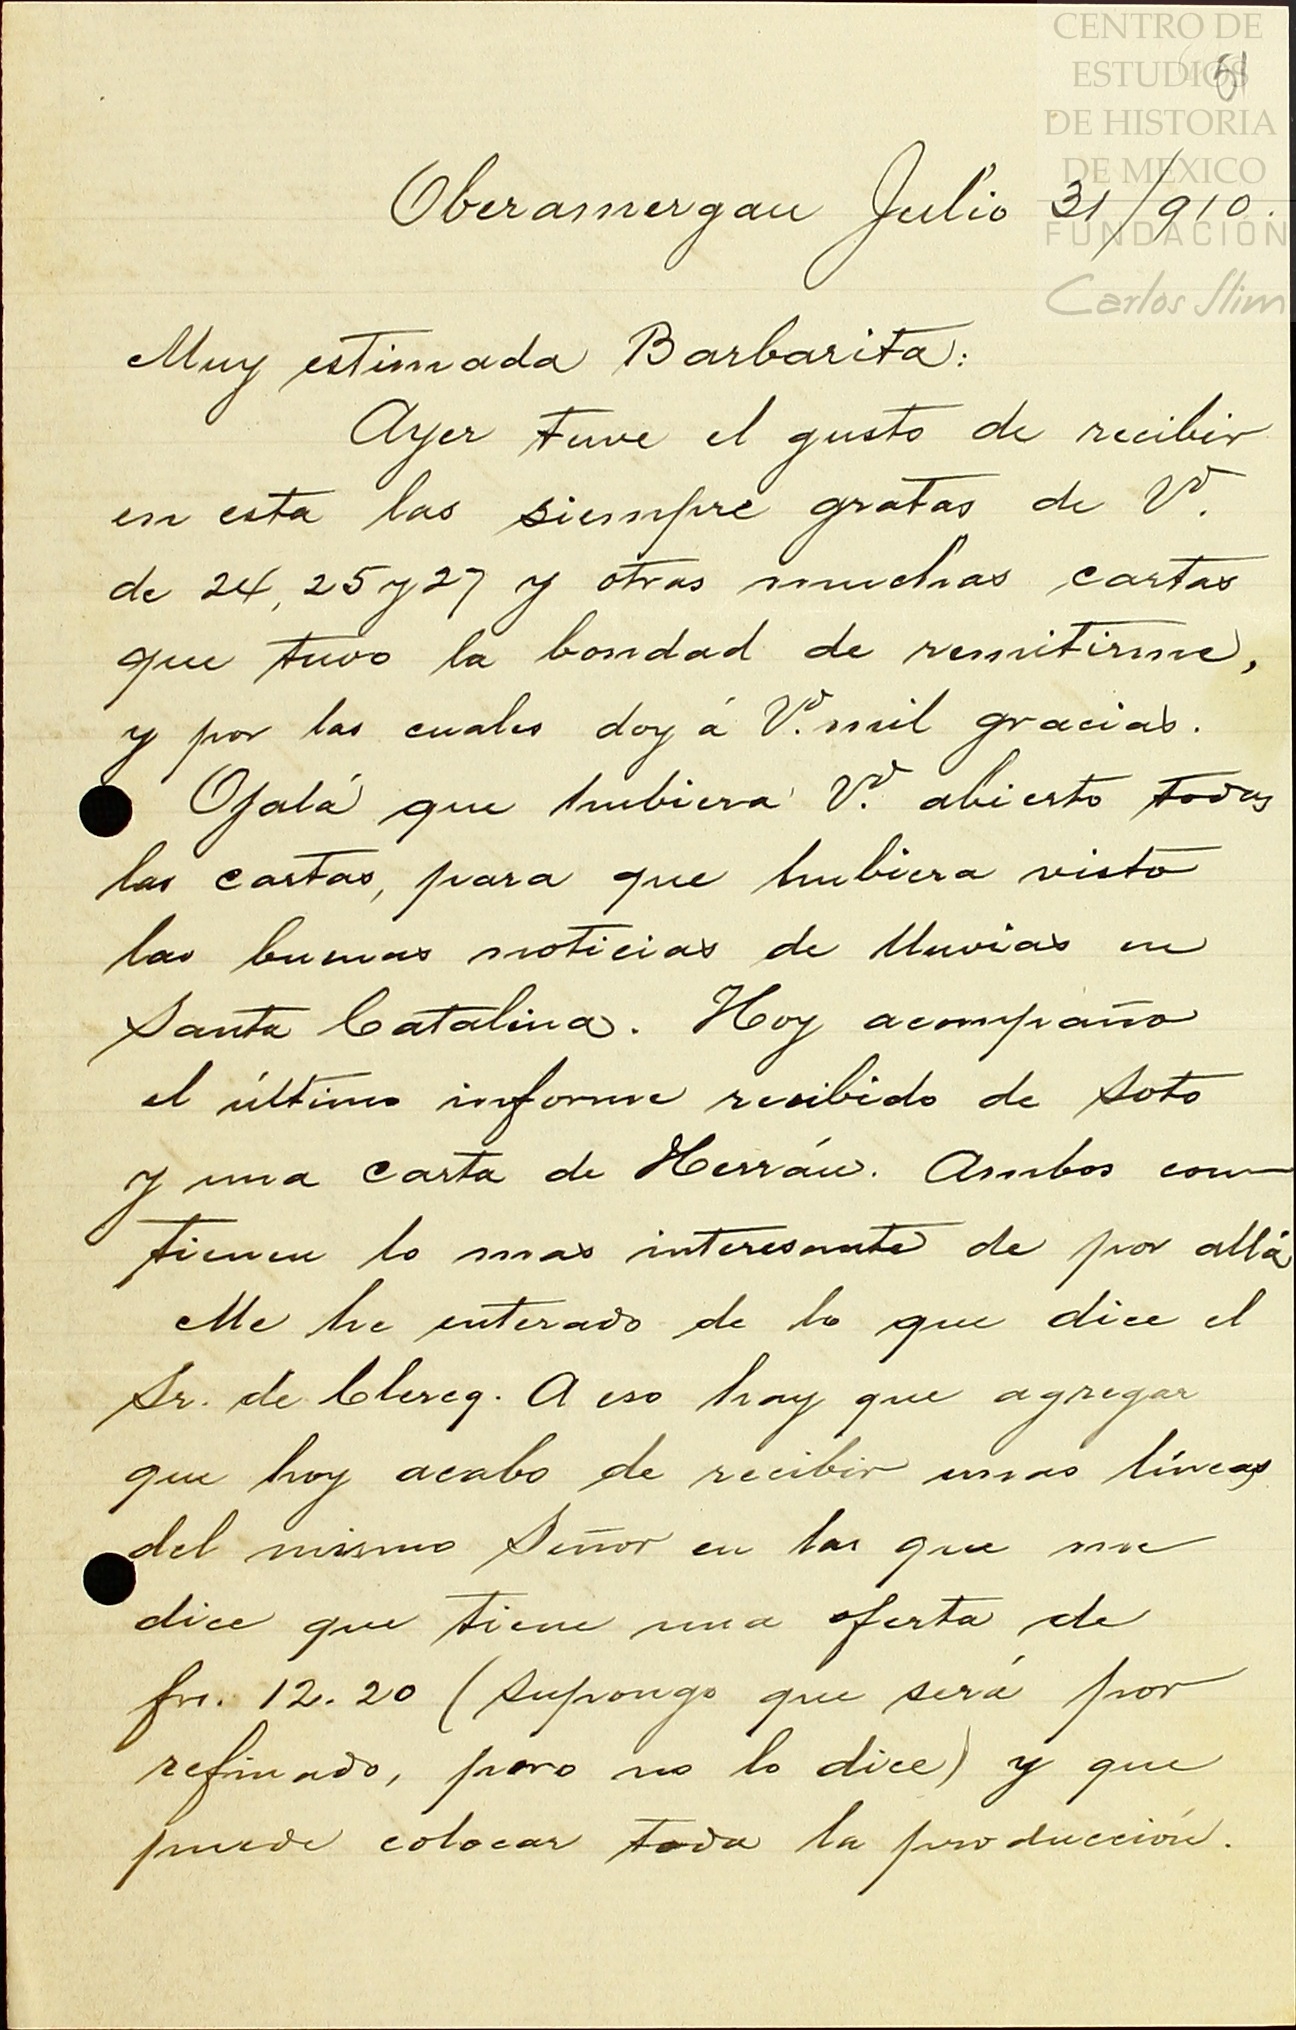 CENTRO DE
ESTUDIOS
DE HISTORIA
DE MEXICO
FUNDACIÓN
Carlos Slim
61
Oberamergau Julio 31/910.
Muy estimada Barbarita:
Ayer tuve el gusto de recibir
en esta las siempre gratas de Vd.
de 24, 25 y 27 y otras muchas cartas
que tuvo la bondad de remitirme,
y por las cuales doy á Vd. mil gracias.
Ojalá que hubiera Vd. abierto todas
las cartas, para que hubiera visto
las buenas noticias de lluvias en
Santa Catalina. Hoy acompaño
el último informe recibido de Soto
y una carta de Herrán. Ambos con-
tienen lo mas interesante de por allá
Me he enterado de lo que dice el
Sr. de Clercq. A eso hay que agregar
que hoy acabo de recibir unas líneas
del mismo Señor en las que me
dice que tiene una oferta de
frs. 12.20 (supongo que será por
refinado, pero no lo dice) y que
puede colocar toda la producción.